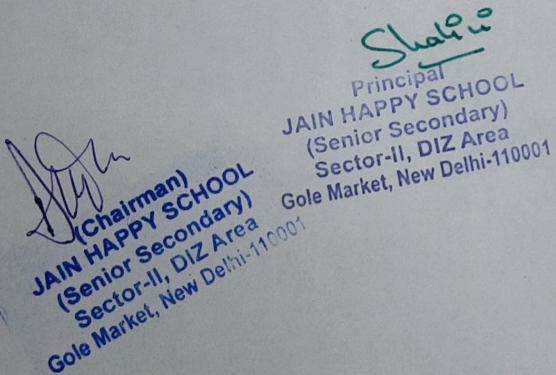 Shalini
Principal
JAIN HAPPY SCHOOL
(Senior Secondary)
Sector-II, DIZ Area
Gole Market, New Delhi-110001
(Chairman)
JAIN HAPPY SCHOOL
(Senior Secondary)
Sector-II, DIZ Area
Gole Market, New Delhi-110001